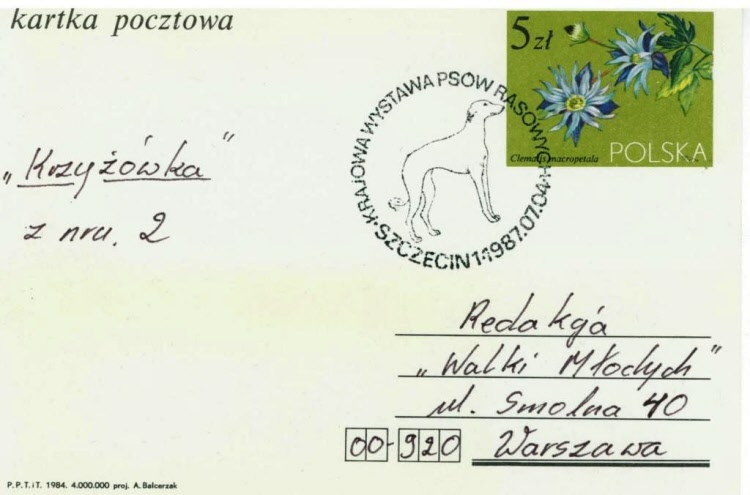 kartka pocztowa
5 zł
Clematis macropetala
POLSKA
KRAJOWA WYSTAWA PSÓW RASOWYCH • SZCZECIN 1 • 1987.07.04 •
„Krzyżówka”
z nru. 2
Redakcja
„Walki Młodych”
ul. Smolna 40
00-920 Warszawa
P.P.T.iT. 1984. 4.000.000 proj. A. Balcerzak